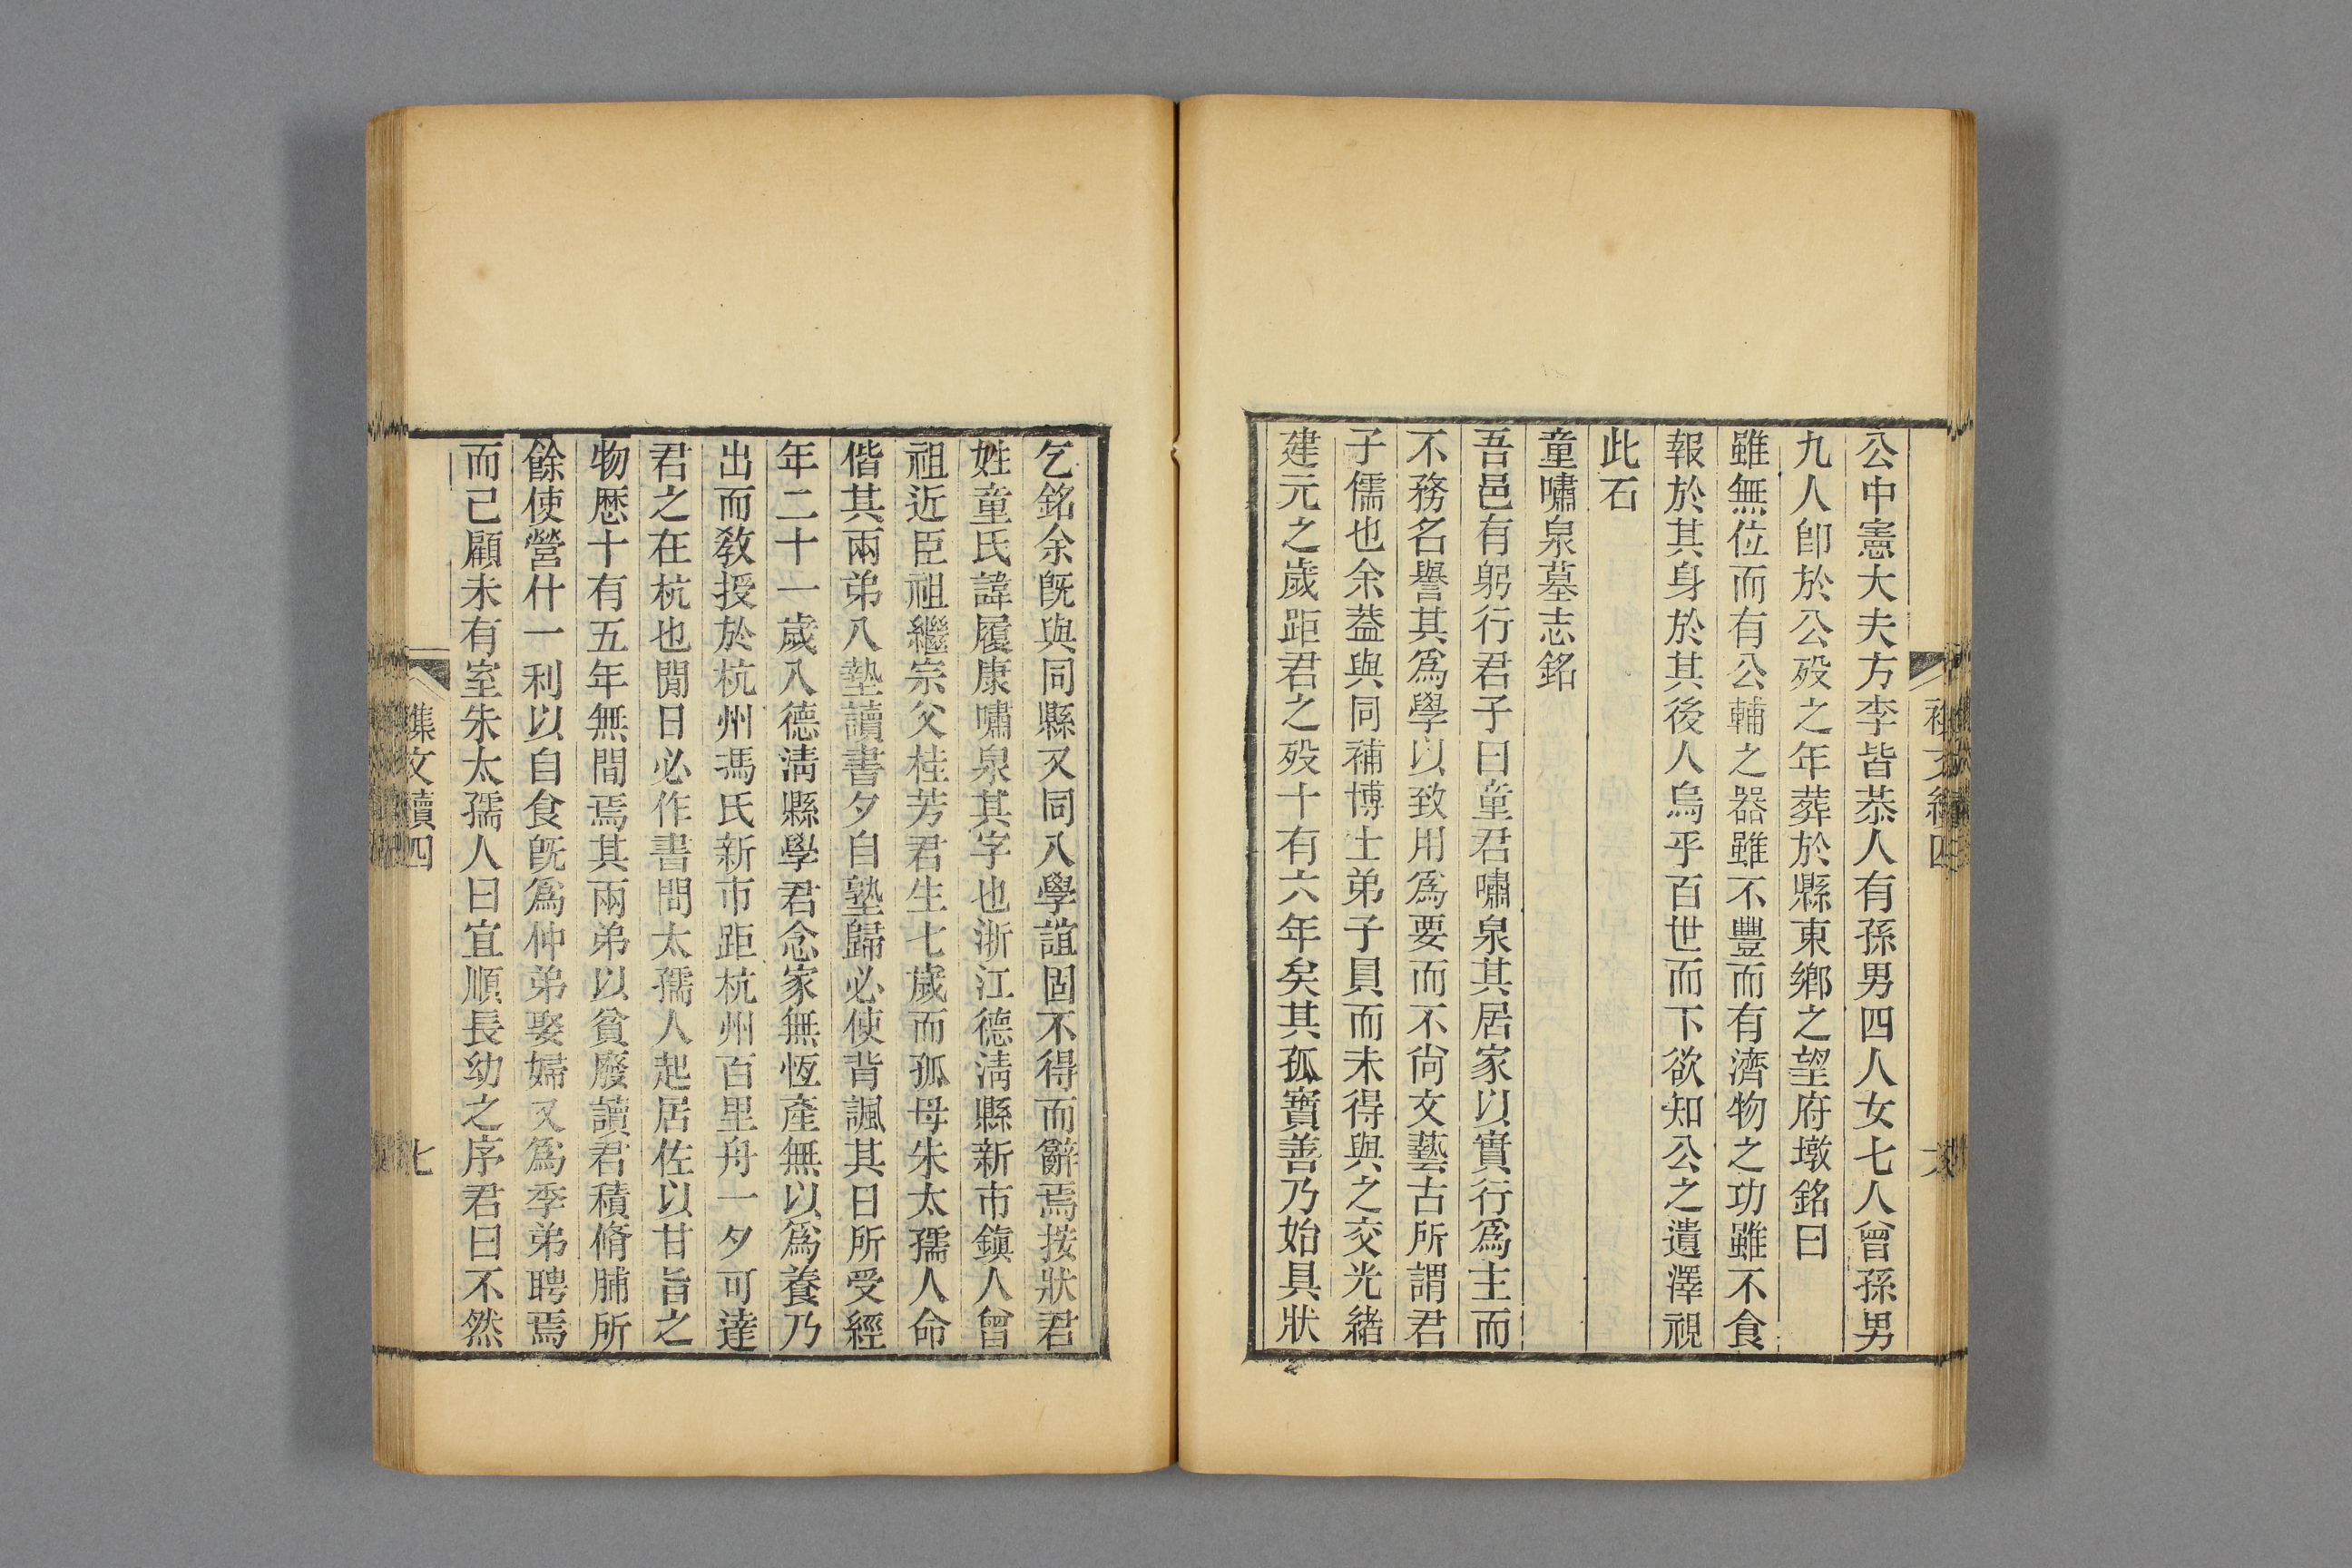 公中憲大夫方李皆恭人有孫男四人女七人曾孫男
九人卽於公歿之年葬於縣東鄉之望府墩銘曰
雖無位而有公輔之器雖不豐而有濟物之功雖不食
報於其身於其後人烏乎百世而下欲知公之遺澤視
此石
童嘯泉墓志銘
吾邑有躬行君子曰童君嘯泉其居家以實行爲主而
不務名譽其爲學以致用爲要而不尙文藝古所謂君
子儒也余葢與同補博士弟子員而未得與之交光緒
建元之歲距君之歿十有六年矣其孤寶善乃始具狀
乞銘余旣與同縣又同入學誼固不得而辭焉按狀君
姓童氏諱履康嘯泉其字也浙江德淸縣新市鎭人曾
祖近臣祖繼宗父桂芳君生七歲而孤母朱太孺人命
偕其兩弟入塾讀書夕自塾歸必使背諷其日所受經
年二十一歲入德淸縣學君念家無恆產無以爲養乃
出而敎授於杭州瑪氏新市距杭州百里舟一夕可達
君之在杭也閒日必作書問太孺人起居佐以甘旨之
物歷十有五年無間焉其兩弟以貧廢讀君積脩脯所
餘使營什一利以自食旣爲仲弟娶婦又爲季弟聘焉
而己顧未有室朱太孺人曰宜順長幼之序君曰不然
文續四
七